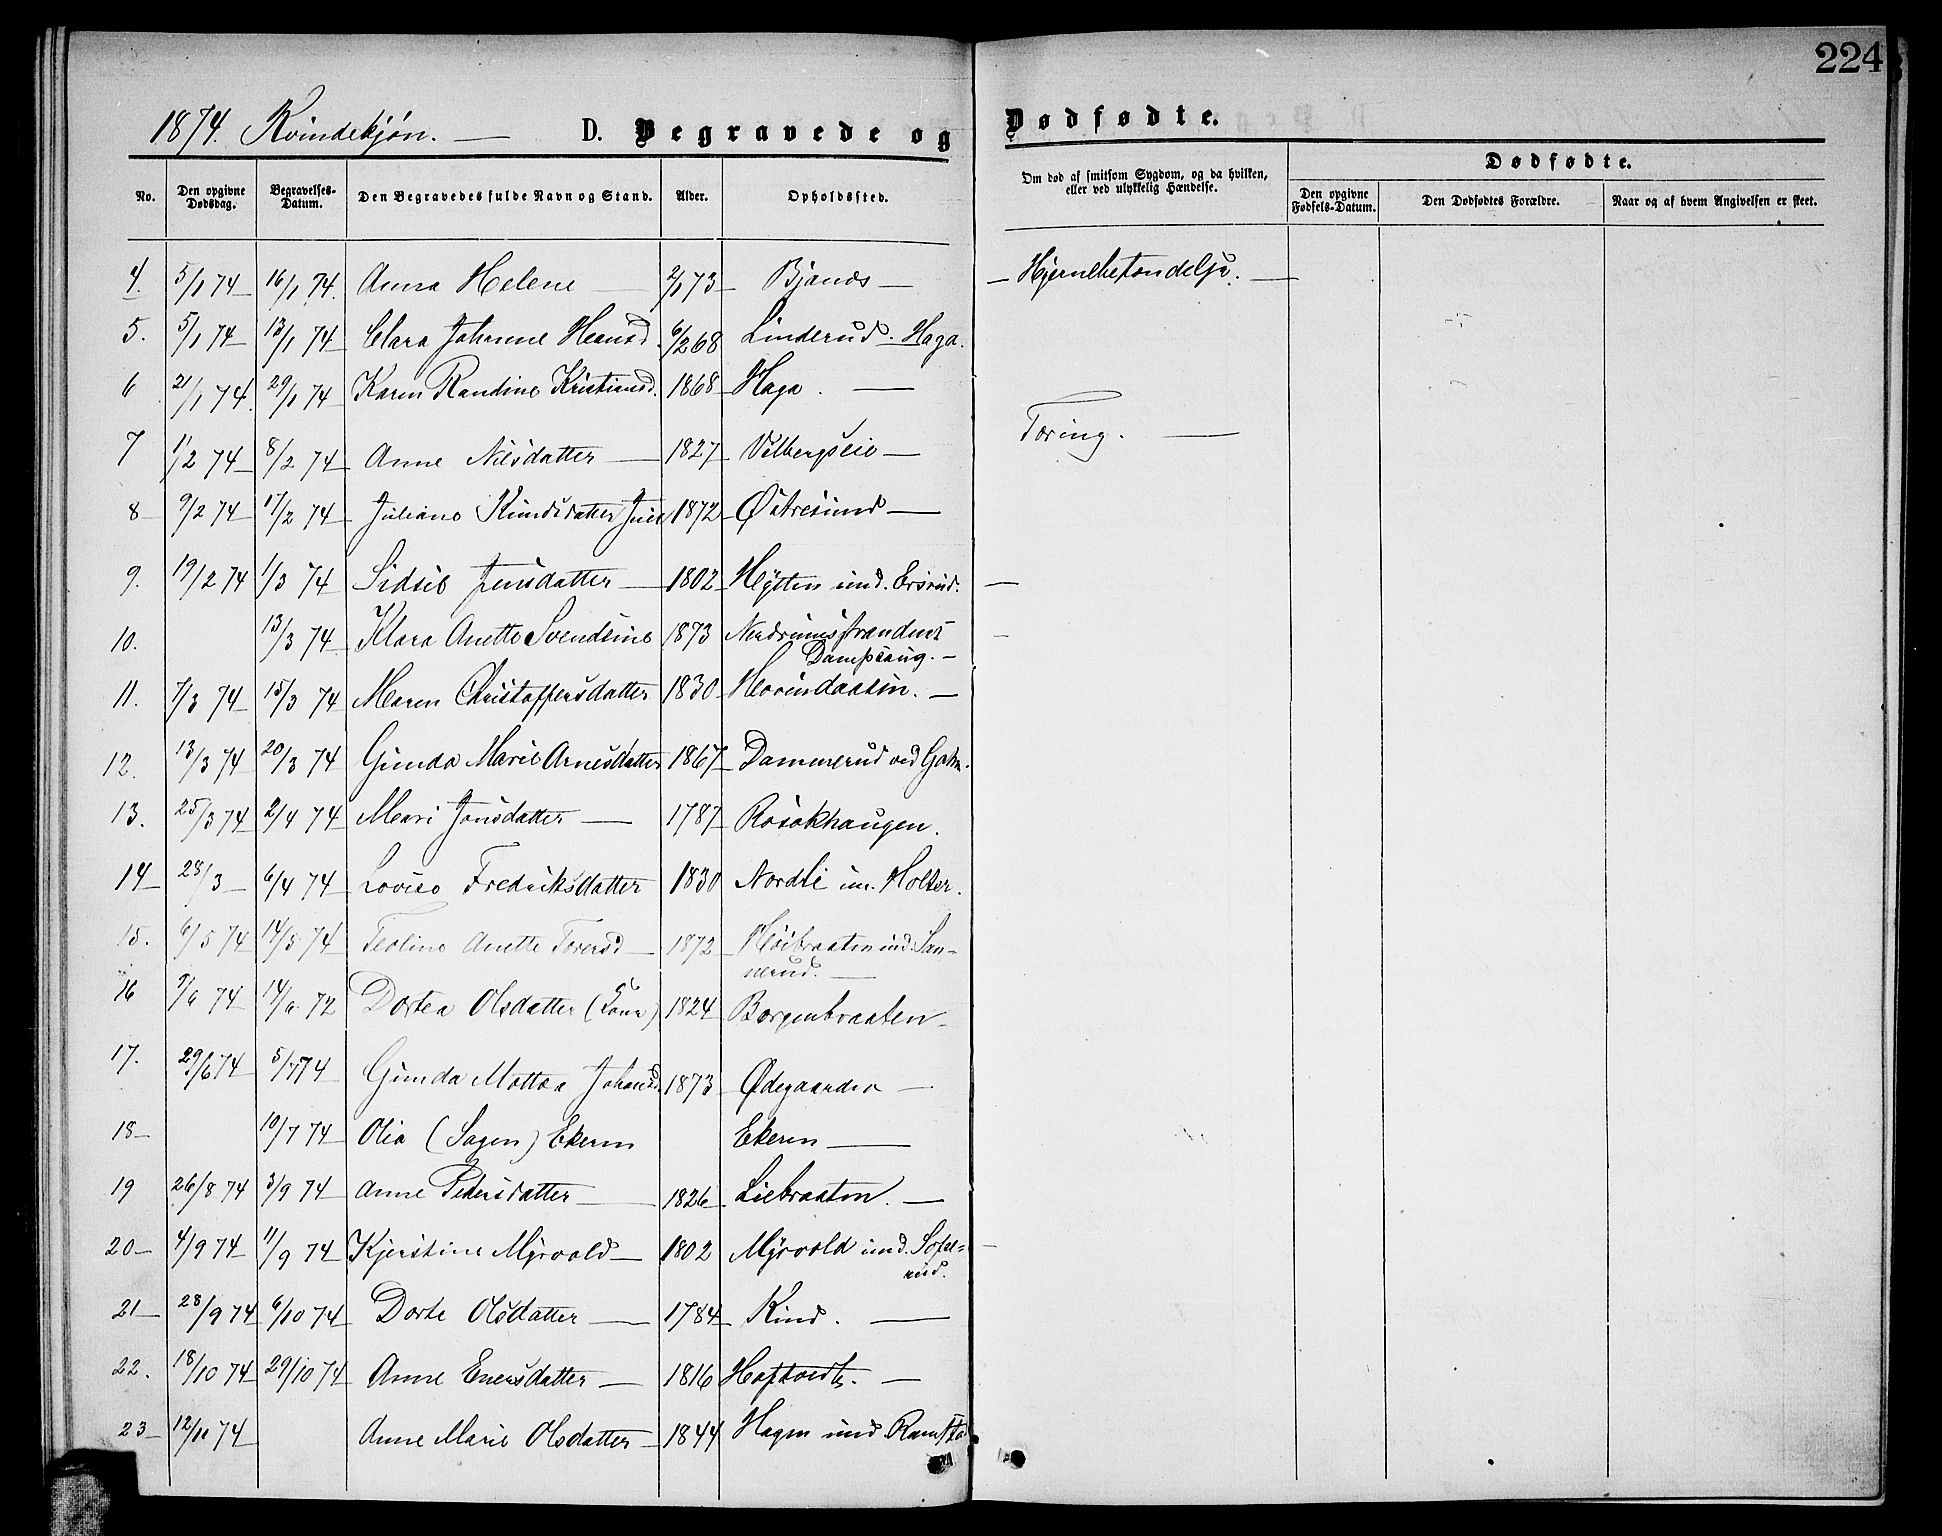 224
1874. Kvindekjøn. — D. Begravede og Dødfødte.
No. Den opgivne Dødsdag. Begravelses-Datum. Den Begravedes fulde Navn og Stand. Alder. Opholdssted. Om død af smitsom Sygdom, og da hvilken, eller ved ulykkelig Hændelse. Dødfødte.
Den opgivne Fødsels-Datum. Den Dødfødtes Forældre. Naar og af hvem Angivelsen er skeet.
4. 5/1 74 16/1 74. Anna Helene — 2/1 73 Bjanes — Hjernebetændelse. —
5. 5/1 74 13/1 74 Clara Johanne Hansd. 6/2 68 Linderud. Haga.
6 21/1 74. 29/1 74 Karen Randine Kristiansd. 1868 Haga. —
7 1/2 74 8/2 74 Anne Nilsdatter — 1827 Vilbergseie — Tæring. —
8 9/2 74 17/2 74 Juliane Knudsdatter 1872 Østresund —
9. 19/2 74 1/3 74 Sidsel Jensdatter — 1802 Hytten und. —
10. 13/3 74 Klara Anette Svendsine 1873 Nerdrumsstrandens
Dampsaug. —
11. 7/3 74 15/3 74 Maren Christoffersdatter 1830 Hovindaasen. —
12. 13/3 74 20/3 74 Gunda Marie Arnesdatter 1867 Dammerud ved
13. 25/3 74 2/4 74 Mari Jonsdatter — 1787 Rosokhaugen.
14 28/3 — 6/4 74 Lovise Fredriksdatter 1830 Nordli un. Holter.
15. 6/5 74 14/5 74 Teoline Anette Torersd — 1872 Høibraaten und. San-
nerud. —
16 9/6 74 14/6 72 Dortea Olsdatter 1824 Borgenbraaten
17. 29/6 74 5/7 74 Gunda Mattea Johansd. 1873 Ødegaarden —
18 — 10/7 74 Olia (Sagen) Ekeren Ekeren —
19 26/8 74 3/9 74 Anne Pedersdatter — 1826 Liebraaten. —
20 — 4/9 74 11/9 74 Kjerstine Myrvold — 1802 Myrvold und. Sofie-
rud.
21 — 28/9 74 6/10 74 Dorte Olsdatter — 1784 Kind. —
22. 18/10 74 29/10 74 Anne Enersdatter — 1816 Haftvedt. —
23 — 12/11 74 Anne Marie Olsdatter — 1844 Hagen und Ramstad